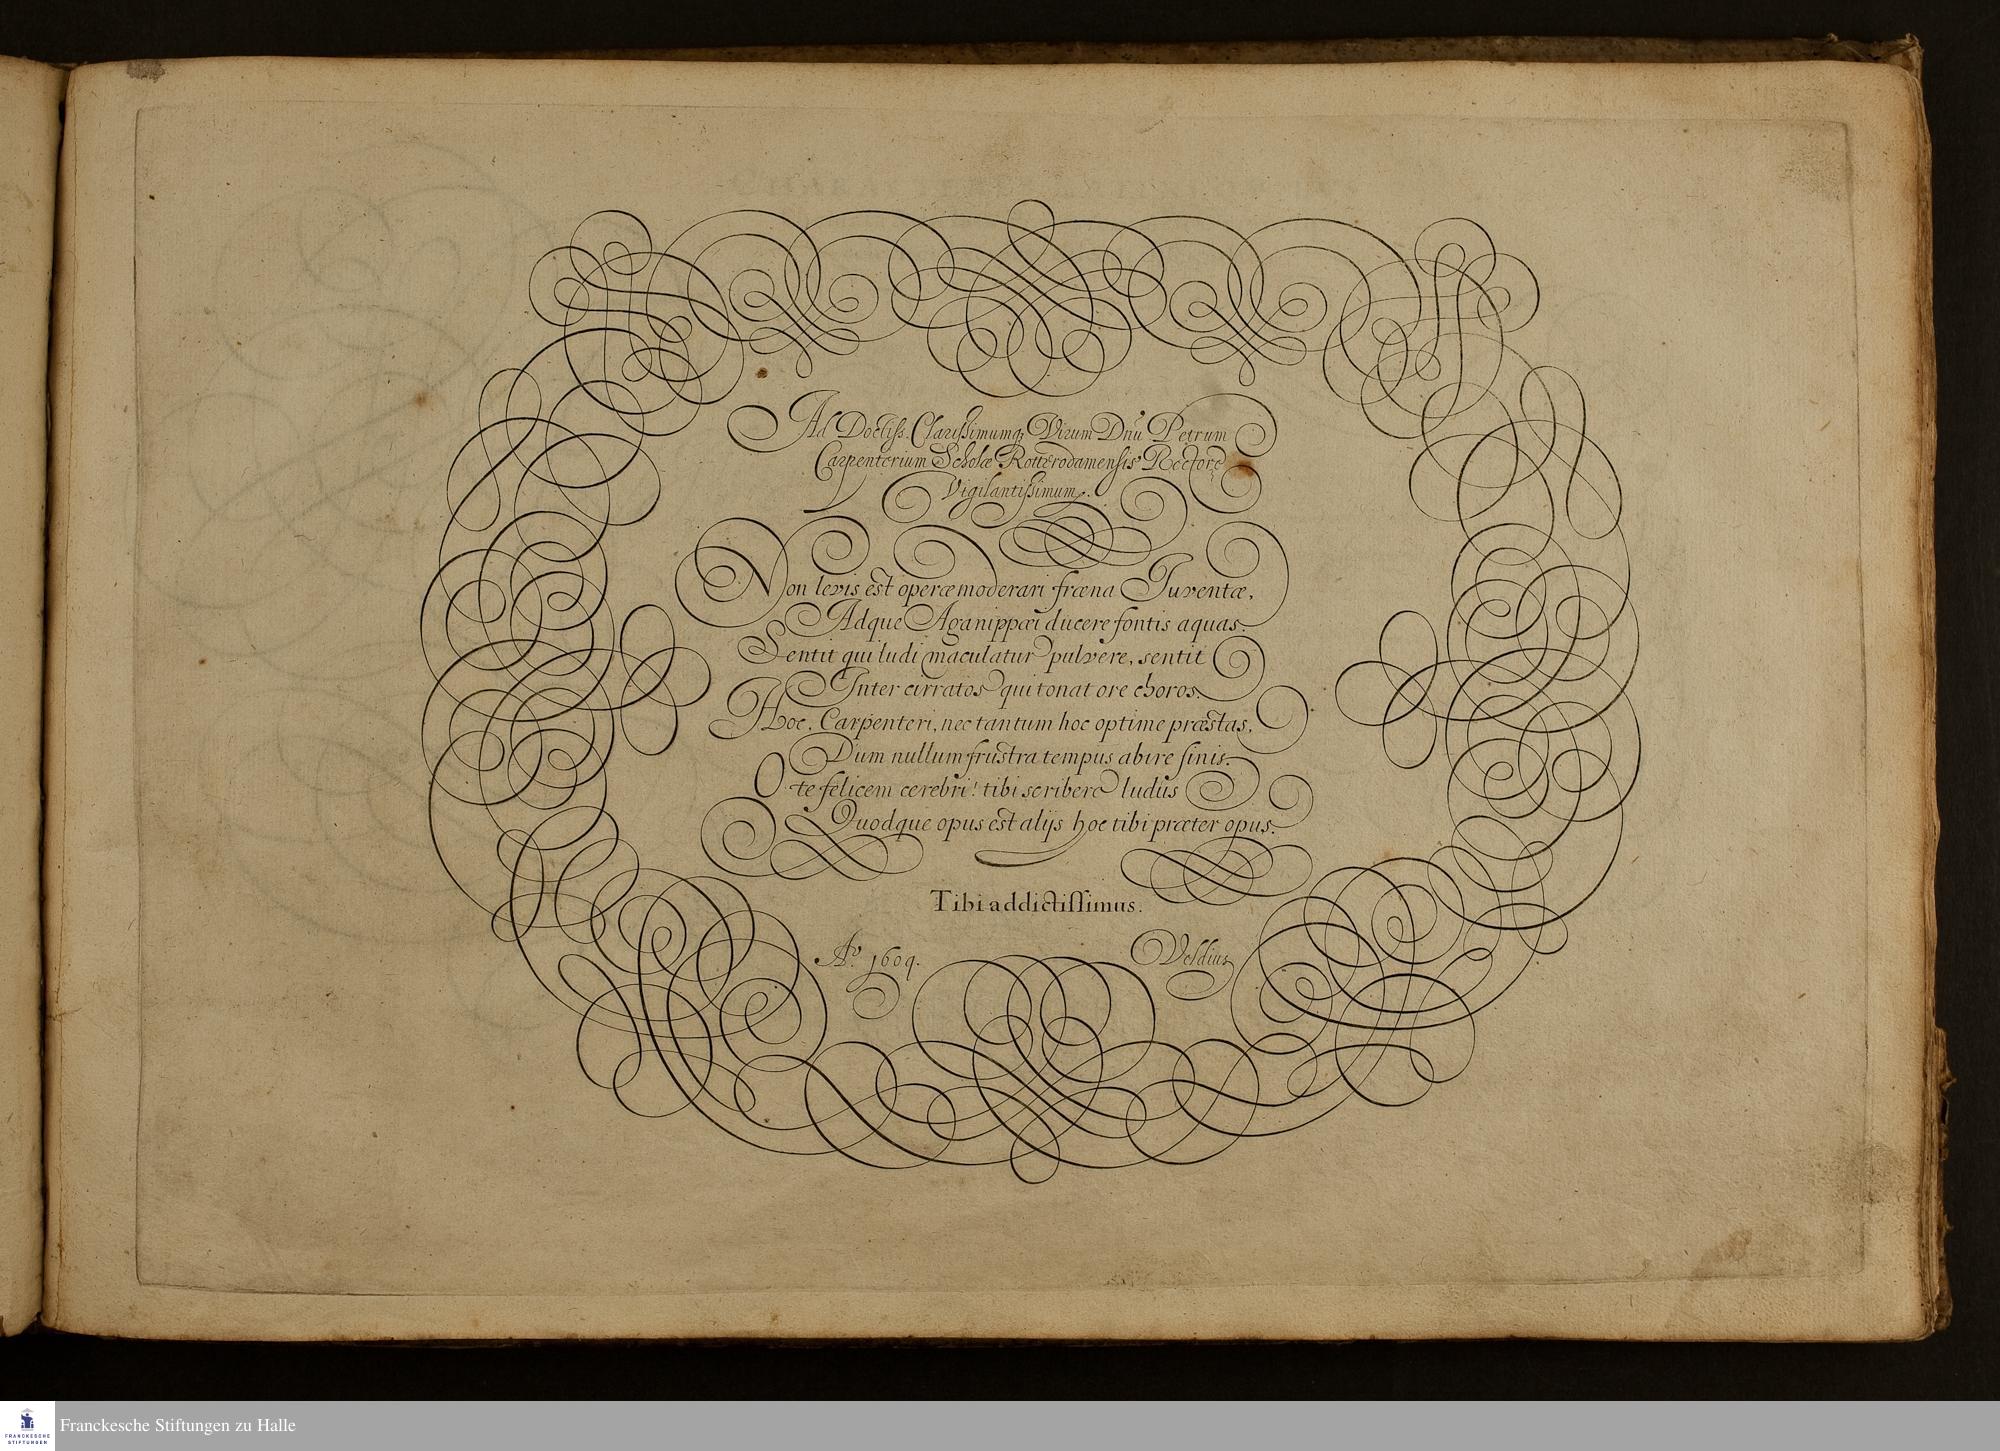 Ad Doctiss. Clarissimumq́ Virum Dnū Petrum
Carpenterium Scholæ Rotterodamensis Rectorē
Vigilantissimum.
Non levis est operæ moderari fræna Juventæ,
Adque Aganippæi ducere fontis aquas.
Sentit qui ludi maculatur pulvere, sentit
Inter cirratos qui tonat ore choros.
Hoc, Carpenteri, nec tantum hoc optime præstas,
Dum nullum frustra tempus abire sinis.
O te felicem cerebri! tibi scribere ludus
Quodque opus est alijs hoc tibi præter opus.
Tibi addictissimus.
Aº. 1604. Veldius
FRANCKESCHE
STIFTUNGEN
Franckesche Stiftungen zu Halle